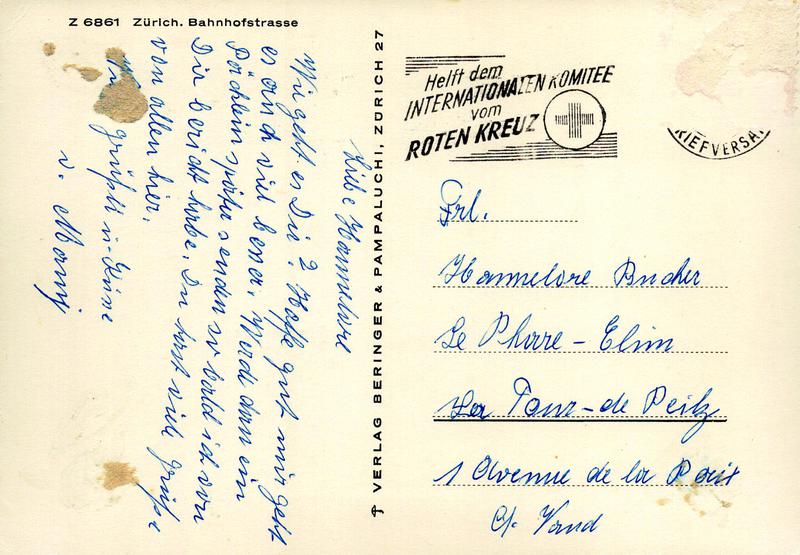 Z 6861 Zürich. Bahnhofstrasse
Liebe Hannelore
Wie geht es Dir? Hoffe gut mir geht
es auch viel besser. Werde dann ein
Päcklein später senden so bald ich von
Dir bericht habe. Du hast viele Grüsse
von allen hier.
grüsst u. Küsse
v. Mami
VERLAG BERINGER & PAMPALUCHI, ZÜRICH 27
Helft dem
INTERNATIONALEN KOMITEE
vom
ROTEN KREUZ
RIEFVERSA
Frl.
Hannelore Bucher
Le Phare - Elim
La Tour-de Peilz
1 Avenue de la Paix
Ct. Vaud